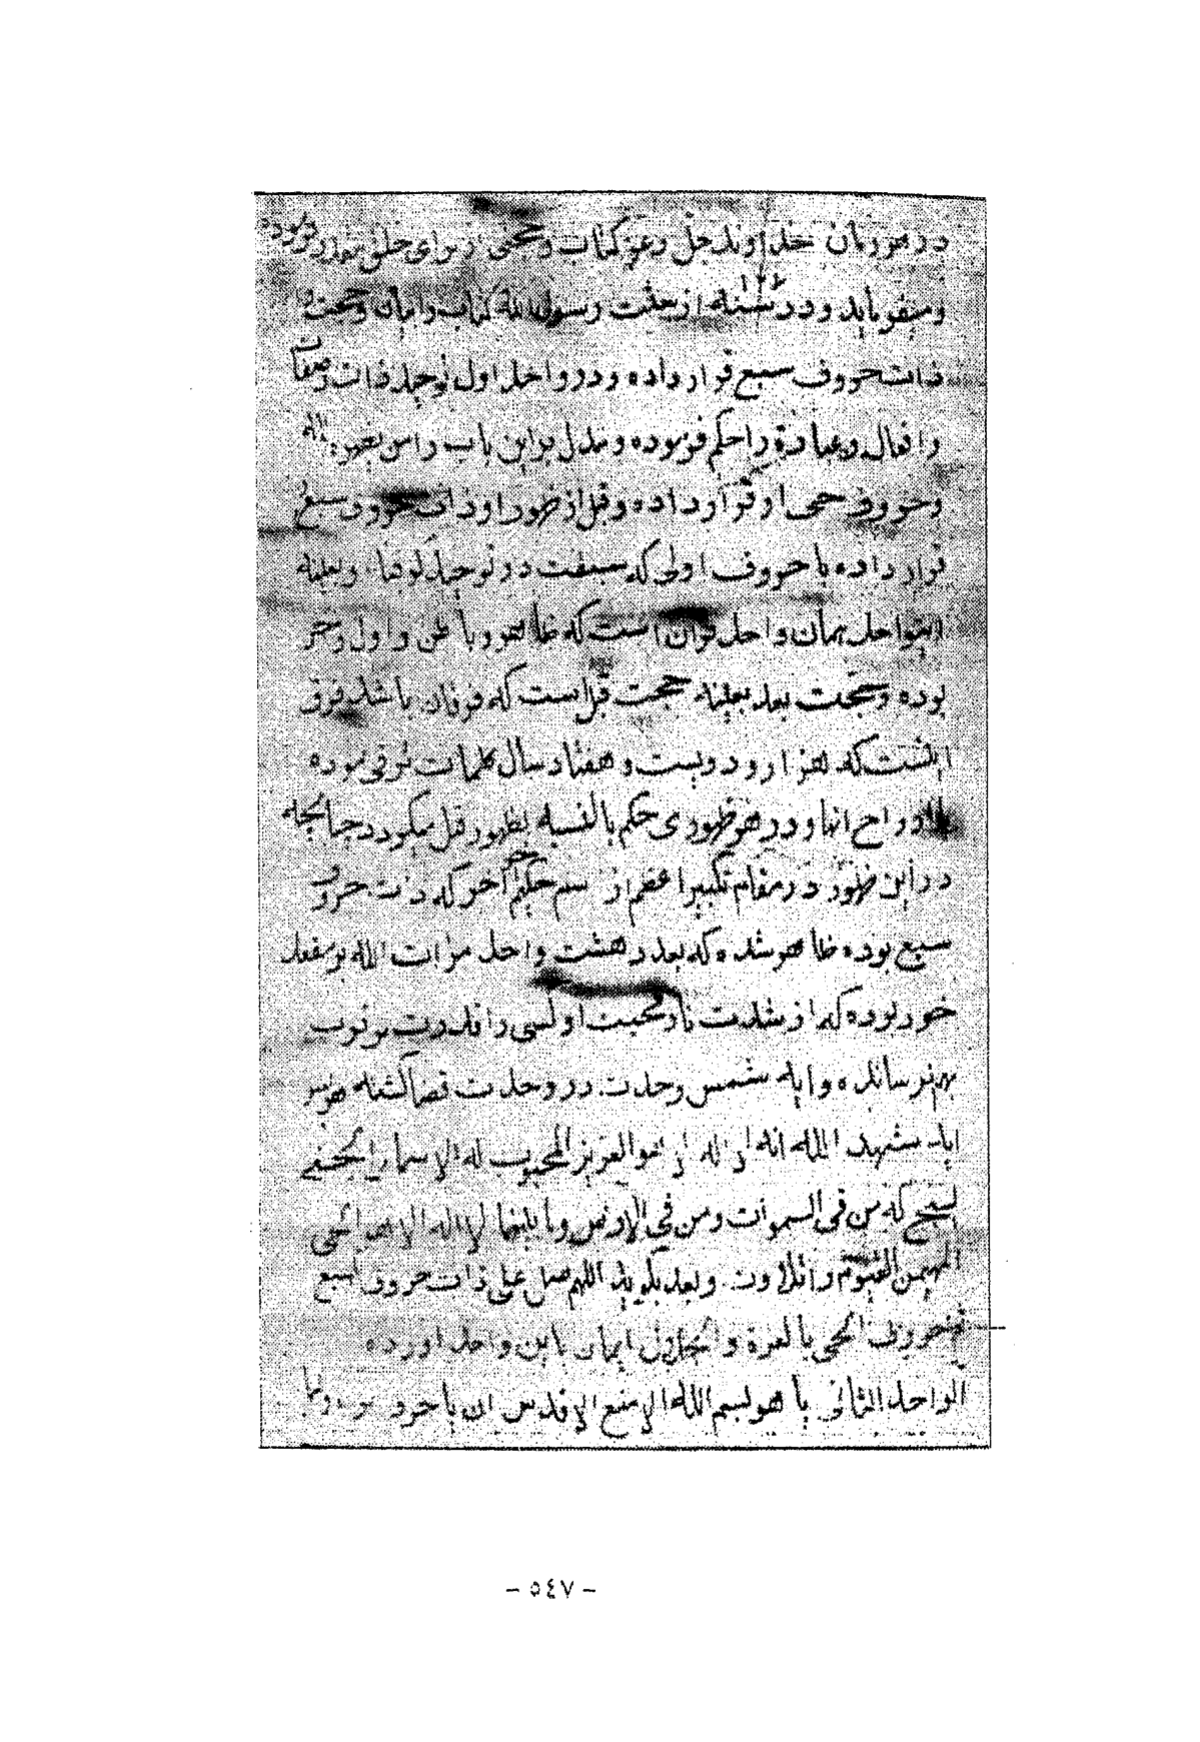 در هر زمان خداوند جل و عز کتاب و حجتی از برای خلق مقدر فرموده
و میفرماید و در سنه ۱۲۷۰ از بعثت رسول الله کتاب را بیان و حجت را
ذات حروف سبع قرار داده و در واحد اول توحید ذات و صفات
و افعال و عبادة را حکم فرموده و مدل بر این باب را من یظهره الله
و حروف حی او قرار داده و قبل از ظهور او ذات حروف سبع
قرار داده با حروف اولی که سبقت در توحید گرفتند و بعینه
اینواحد همان واحد قران است که ظاهر و باطن و اول و آخر
بوده و حجت بعد بعینه حجت قبل است که فرقان باشد فرق
اینست که هزار و دویست و هفتاد سال کلمات ترقی نموده
ارواح انها و در هر ظهوری حکم بالنسبه بظهور قبل میگردد چنانچه
در این ظهور در مقام تکبیر اعظم از اسم حکیم آخر که ذات حروف
سبع بوده ظاهر شده که بعد در هشت واحد مرات الله بر مقعد
خود بوده که از شدت نار محبت او کسی را قدرت بر قرب
بهم نرسانده و ایه شمس وحدت در وحدت قضا گشته هو
ایه شهد الله انه لا اله الا هو العزیز المحبوب له الاسماء الحسنی
یسبح له من فی السموات و من فی الارض و ما بینهما لا اله الا هو الحی
المهیمن القیوم را تلاوت و بعد بگوید اللهم صل علی ذات حروف السبع
ثم حروف الحی بالعزة و الجلال ایمان باین واحد اورده
الواحد الثانی یا هو بسم الله الامنع الاقدس ان یا حروف
- ٥٤٧ -